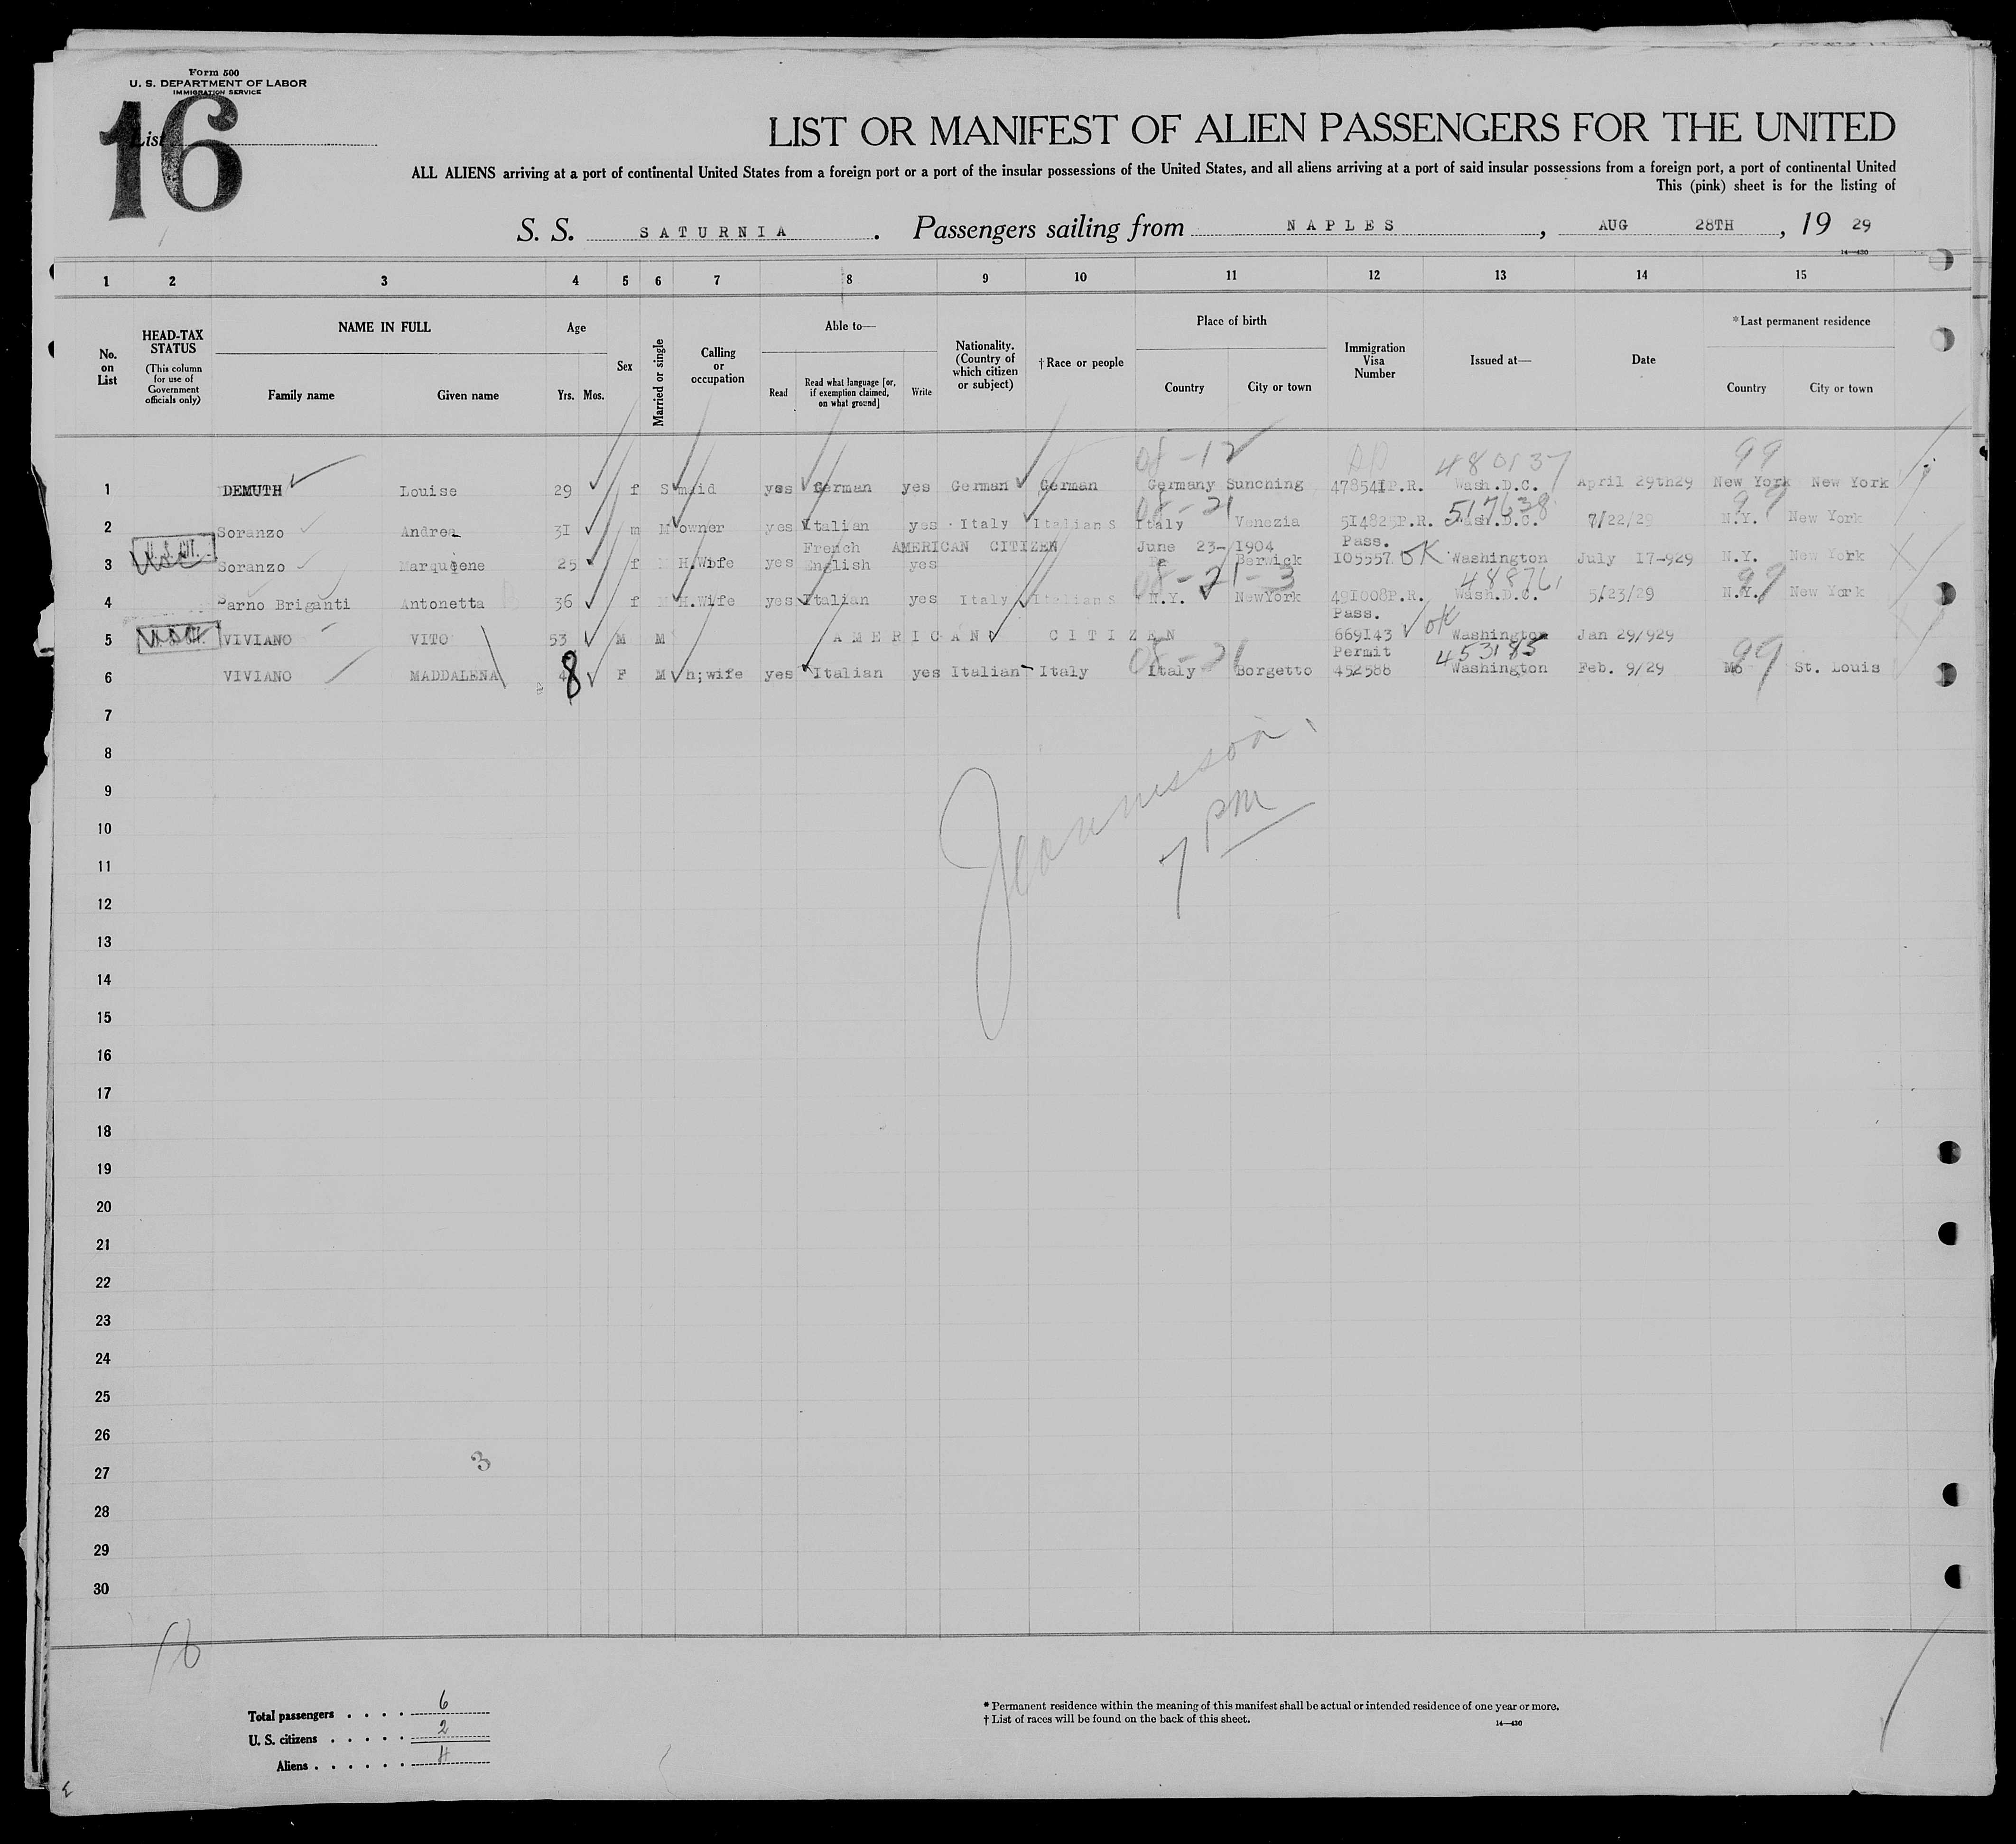 Form 500
U. S. DEPARTMENT OF LABOR
IMMIGRATION SERVICE
List 16
LIST OR MANIFEST OF ALIEN PASSENGERS FOR THE UNITED
ALL ALIENS arriving at a port of continental United States from a foreign port or a port of the insular possessions of the United States, and all aliens arriving at a port of said insular possessions from a foreign port, a port of continental United
This (pink) sheet is for the listing of
S. S. SATURNIA. Passengers sailing from NAPLES, AUG 28TH, 19 29
14—430
1 2 3 4 5 6 7 8 9 10 11 12 13 14 15
No. on List
HEAD-TAX STATUS (This column for use of Government officials only)
NAME IN FULL Family name Given name
Age Yrs. Mos.
Sex
Married or single
Calling or occupation
Able to— Read Read what language [or, if exemption claimed, on what ground] Write
Nationality. (Country of which citizen or subject)
†Race or people
Place of birth Country City or town
Immigration Visa Number
Issued at—
Date
*Last permanent residence Country City or town
08-12 480137 99
1 DEMUTH Louise 29 f S maid yes German yes German German Germany Sunching 478541P.R. Wash.D.C. April 29th29 New York New York
08-21 517638 99
2 Soranzo Andrea 31 m M owner yes Italian yes Italy Italian S Italy Venezia 514825P.R. Wash.D.C. 7/22/29 N.Y. New York
French AMERICAN CITIZEN June 23-1904 Pass.
3 Soranzo 25 f M H.Wife yes English yes Pa Berwick 105557 OK Washington July 17-929 N.Y. New York
08-21-3 488761 99
4 Parno Briganti Antonetta 36 f M H.Wife yes Italian yes Italy Italian S N.Y. NewYork 491008P.R. Wash.D.C. 5/23/29 N.Y. New York
Pass.
5 VIVIANO VITO 53 M M AMERICAN CITIZEN 669143 OK Washington Jan 29/929
08-21 Permit 453185 99
6 VIVIANO MADDALENA 48 F M h;wife yes Italian yes Italian Italy Italy Borgetto 452586 Washington Feb. 9/29 Mo St. Louis
7
8
9
10
11
12
13
14
15
16
17
18
19
20
21
22
23
24
25
26
27
28
29
30
7 pm
3
16
Total passengers . . . . 6
U. S. citizens . . . . . 2
Aliens . . . . . . 4
* Permanent residence within the meaning of this manifest shall be actual or intended residence of one year or more.
† List of races will be found on the back of this sheet.
14—430